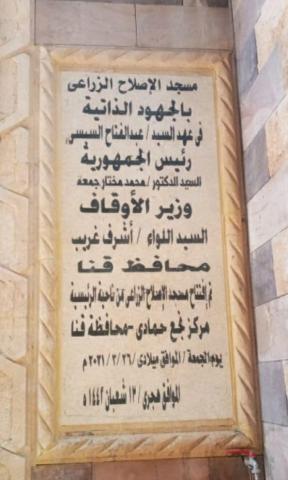 مسجد الإصلاح الزراعى
بالجهود الذاتية
فى عهد السيد / عبدالفتاح السيسى
رئيس الجمهورية
السيد الدكتور / محمد مختار جمعة
وزير الأوقاف
السيد اللواء / أشرف غريب
محافظ قنا
تم إفتتاح مسجد الإصلاح الزراعى عزبة الرئيسية
مركز نجع حمادى - محافظة قنا
يوم الجمعة / الموافق ميلادى ٢٠٢١/٢/٢٦ م
الموافق هجرى / ١٣ شعبان ١٤٤٢ ه